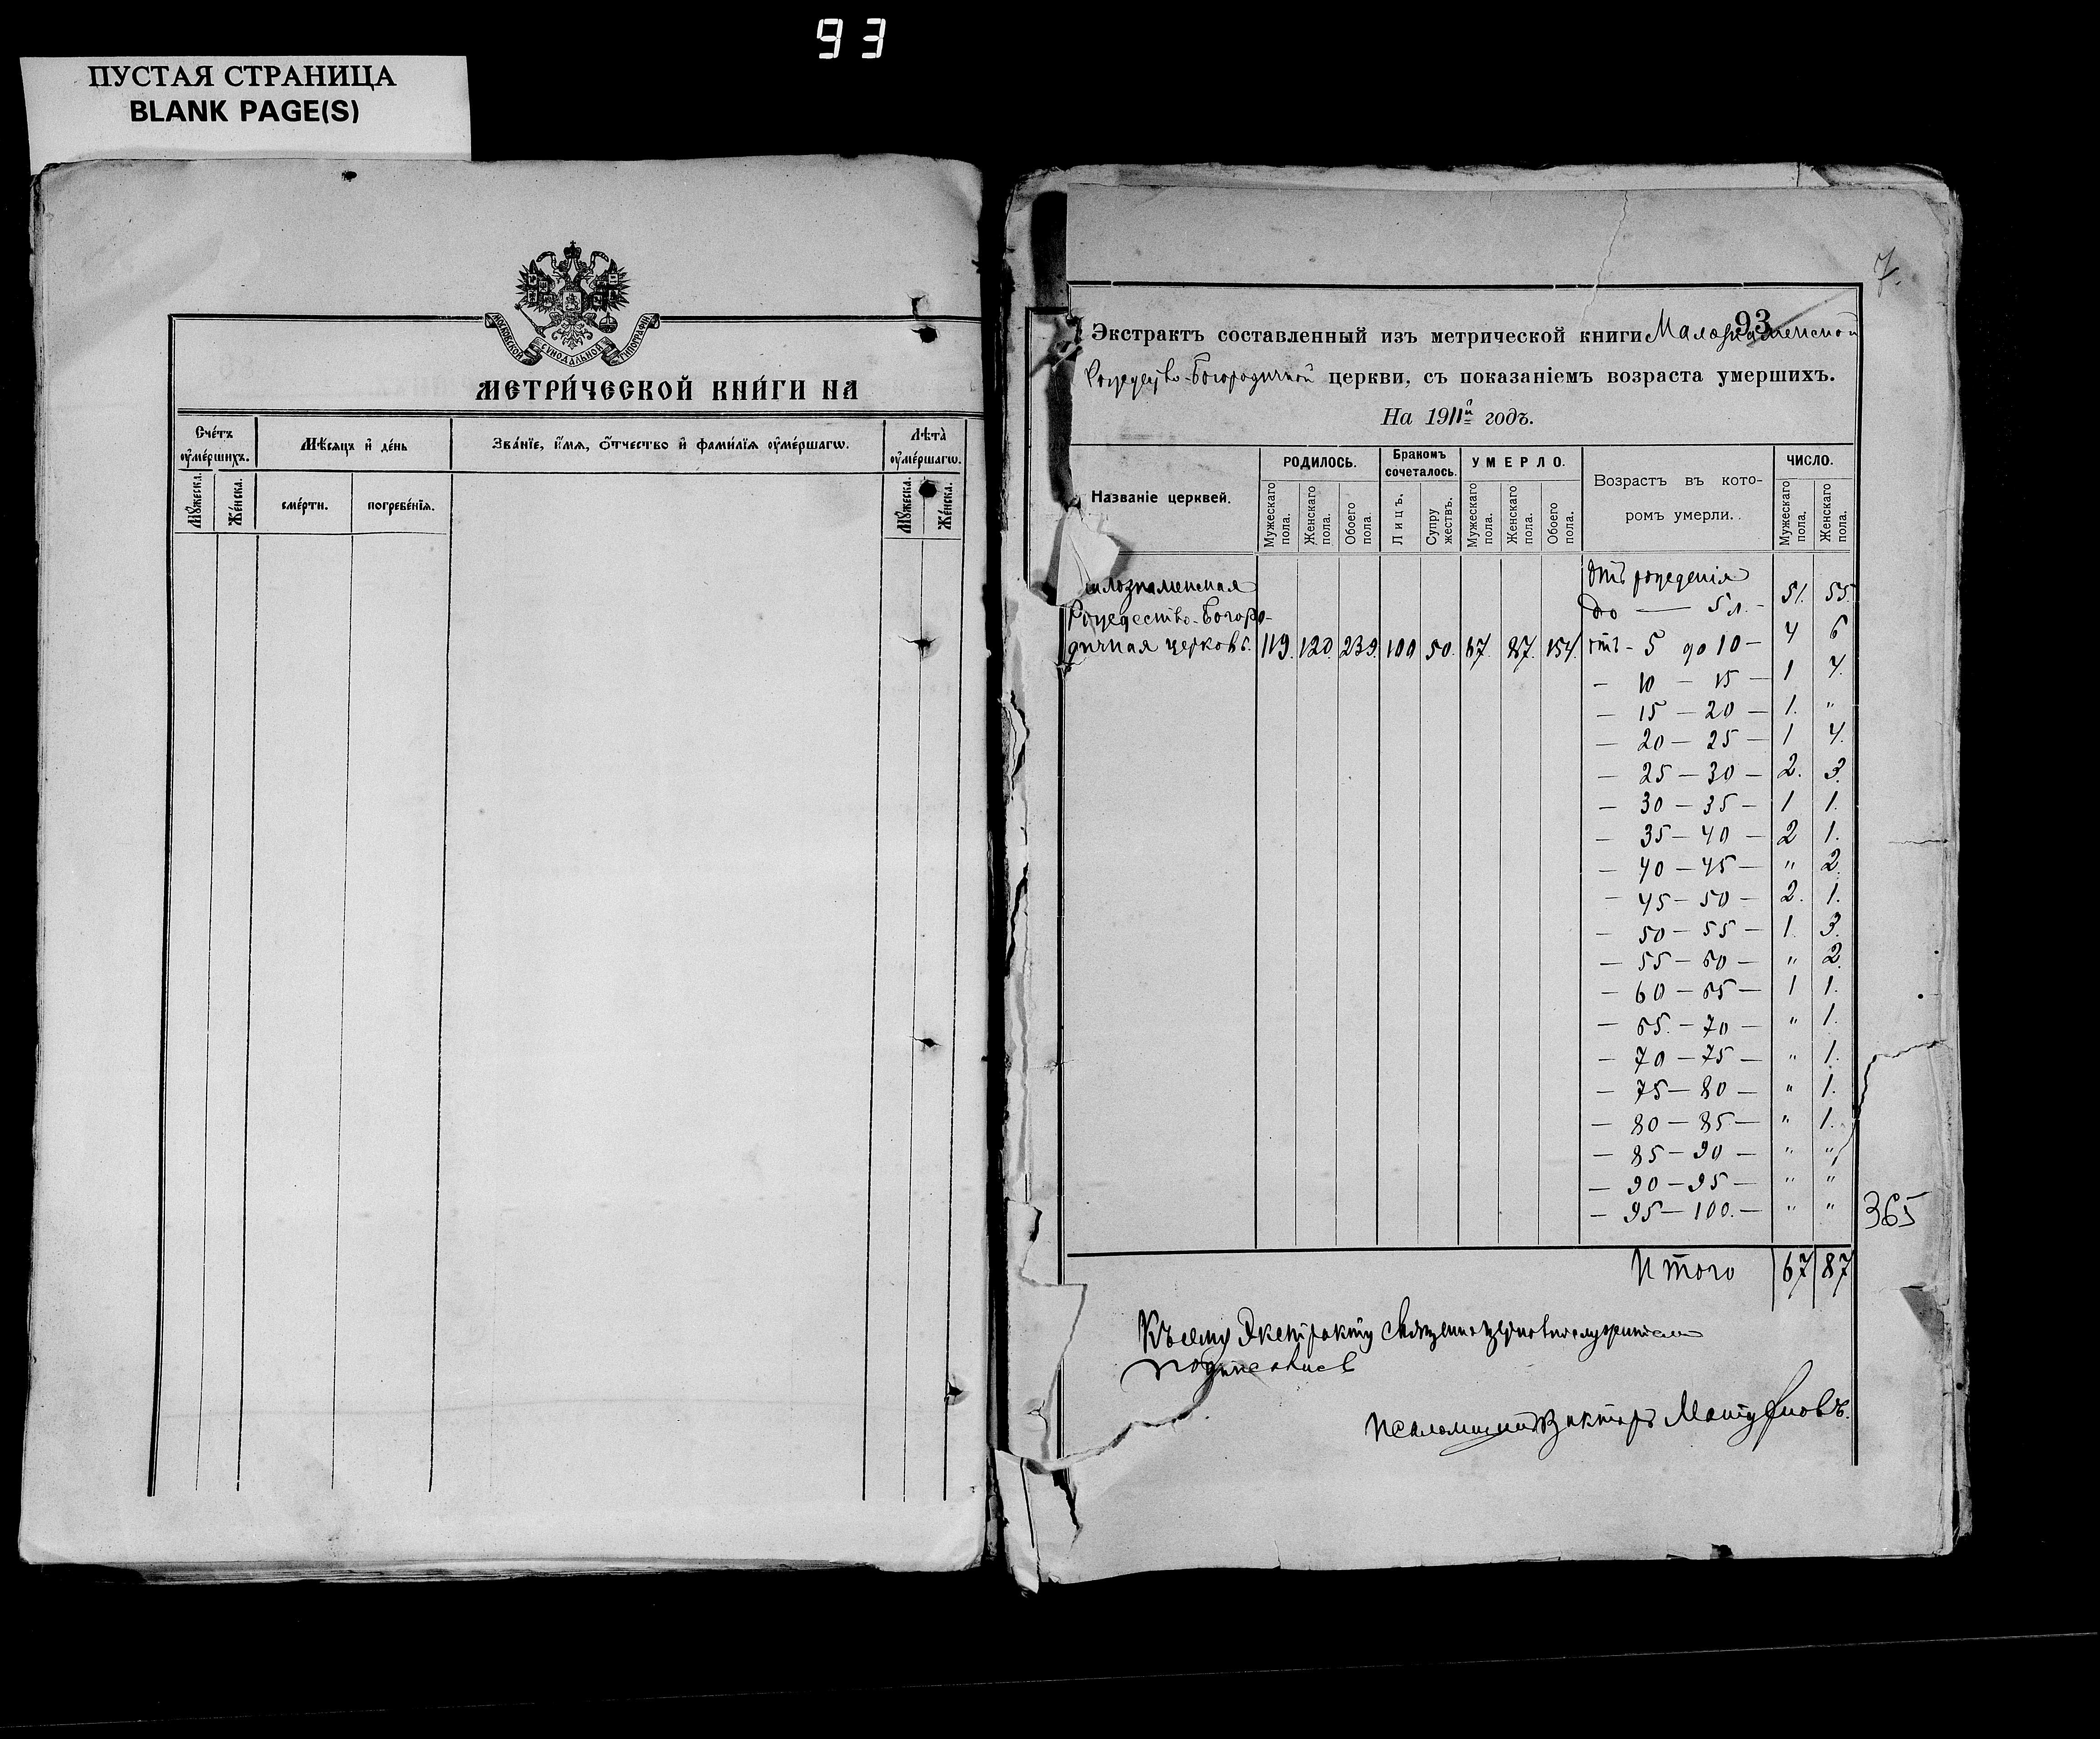 93
ПУСТАЯ СТРАНИЦА
BLANK PAGE(S)
МОСКОВСКОЙ СѴНОДАЛЬНОЙ ТИПОГРАФІИ
МЕТРИ́ЧЕСКОЙ КНИ́ГИ НА
Сче́тъ ᲂу҆ме́ршихъ.
Мѣ́сяцъ и҆ де́нь
Зва́нїе, и҆́мѧ, ѻ҆́тчество и҆ фами́лїѧ ᲂу҆ме́ршагѡ.
Лѣта̀ ᲂу҆ме́ршагѡ.
Мꙋ́жеска.
Же́нска.
сме́рти.
погребе́нїѧ.
Мꙋ́жеска.
Же́нска.
7.
93
Экстрактъ составленный изъ метрической книги Малознаменской
Рождество-Богородичной церкви, съ показаніемъ возраста умершихъ.
На 1911й годъ.
Названіе церквей.
РОДИЛОСЬ.
Бракомъ сочеталось.
УМЕРЛО.
Возрастъ въ которомъ умерли.
ЧИСЛО.
Мужескаго пола.
Женскаго пола.
Обоего пола.
Лицъ.
Супружествъ.
Мужескаго пола.
Женскаго пола.
Обоего пола.
Мужескаго пола.
Женскаго пола.
алознаменская
Рождество-Богоро-
дичная церковь. 119. 120. 239. 100 50. 67. 87. 154.
Отъ рожденія
до — 5 л. — 51. 55.
отъ — 5 до 10 — 4 6
— 10 — 15 — 1 4.
— 15 — 20 — 1. "
— 20 — 25 — 1 4.
— 25 — 30 — 2. 3.
— 30 — 35 — 1 1.
— 35 — 40 — 2 1.
— 40 — 45 — " 2.
— 45 — 50 — 2. 1.
— 50 — 55 — 1. 3.
— 55 — 60 — " 2.
— 60 — 65 — 1 1.
— 65. — 70 — " 1.
— 70 — 75 — " 1.
— 75 — 80 — " 1.
— 80 — 85 — " 1.
— 85 — 90 — " "
— 90 — 95 — " "
— 95 — 100. — " "
365
Итого 67 87
Къ сему Экстракту священноцерковнослужители
подписались
псаломщикъ Викторъ